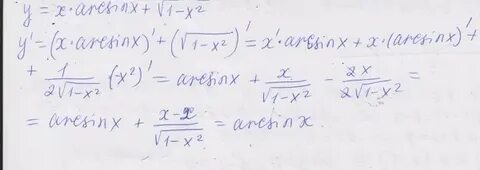 y = x·arcsinx + √(1-x²)
y' = (x·arcsinx)' + (√(1-x²))' = x'·arcsinx + x·(arcsinx)' +
+ 1/(2√(1-x²)) · (-x²)' = arcsinx + x/√(1-x²) - 2x/(2√(1-x²)) =
= arcsinx + (x-x)/√(1-x²) = arcsinx.